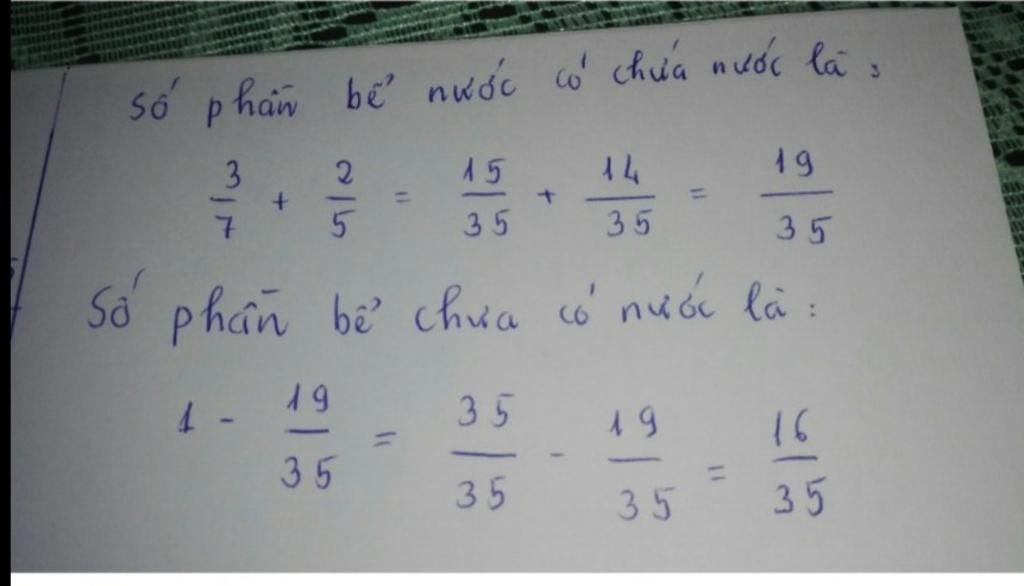 Số phần bể nước có chứa nước là :
3/7 + 2/5 = 15/35 + 14/35 = 19/35
Số phần bể chưa có nước là :
1 - 19/35 = 35/35 - 19/35 = 16/35